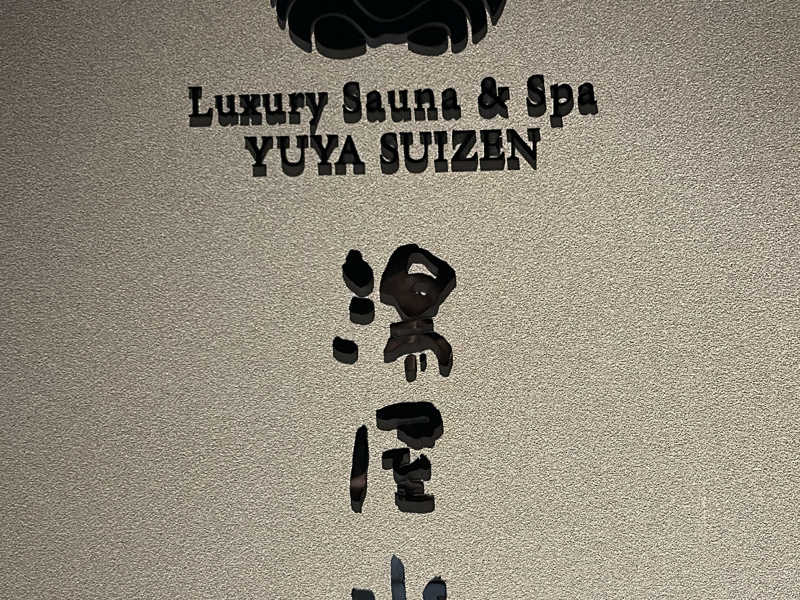 Luxury Sauna & Spa
YUYA SUIZEN
湯屋水